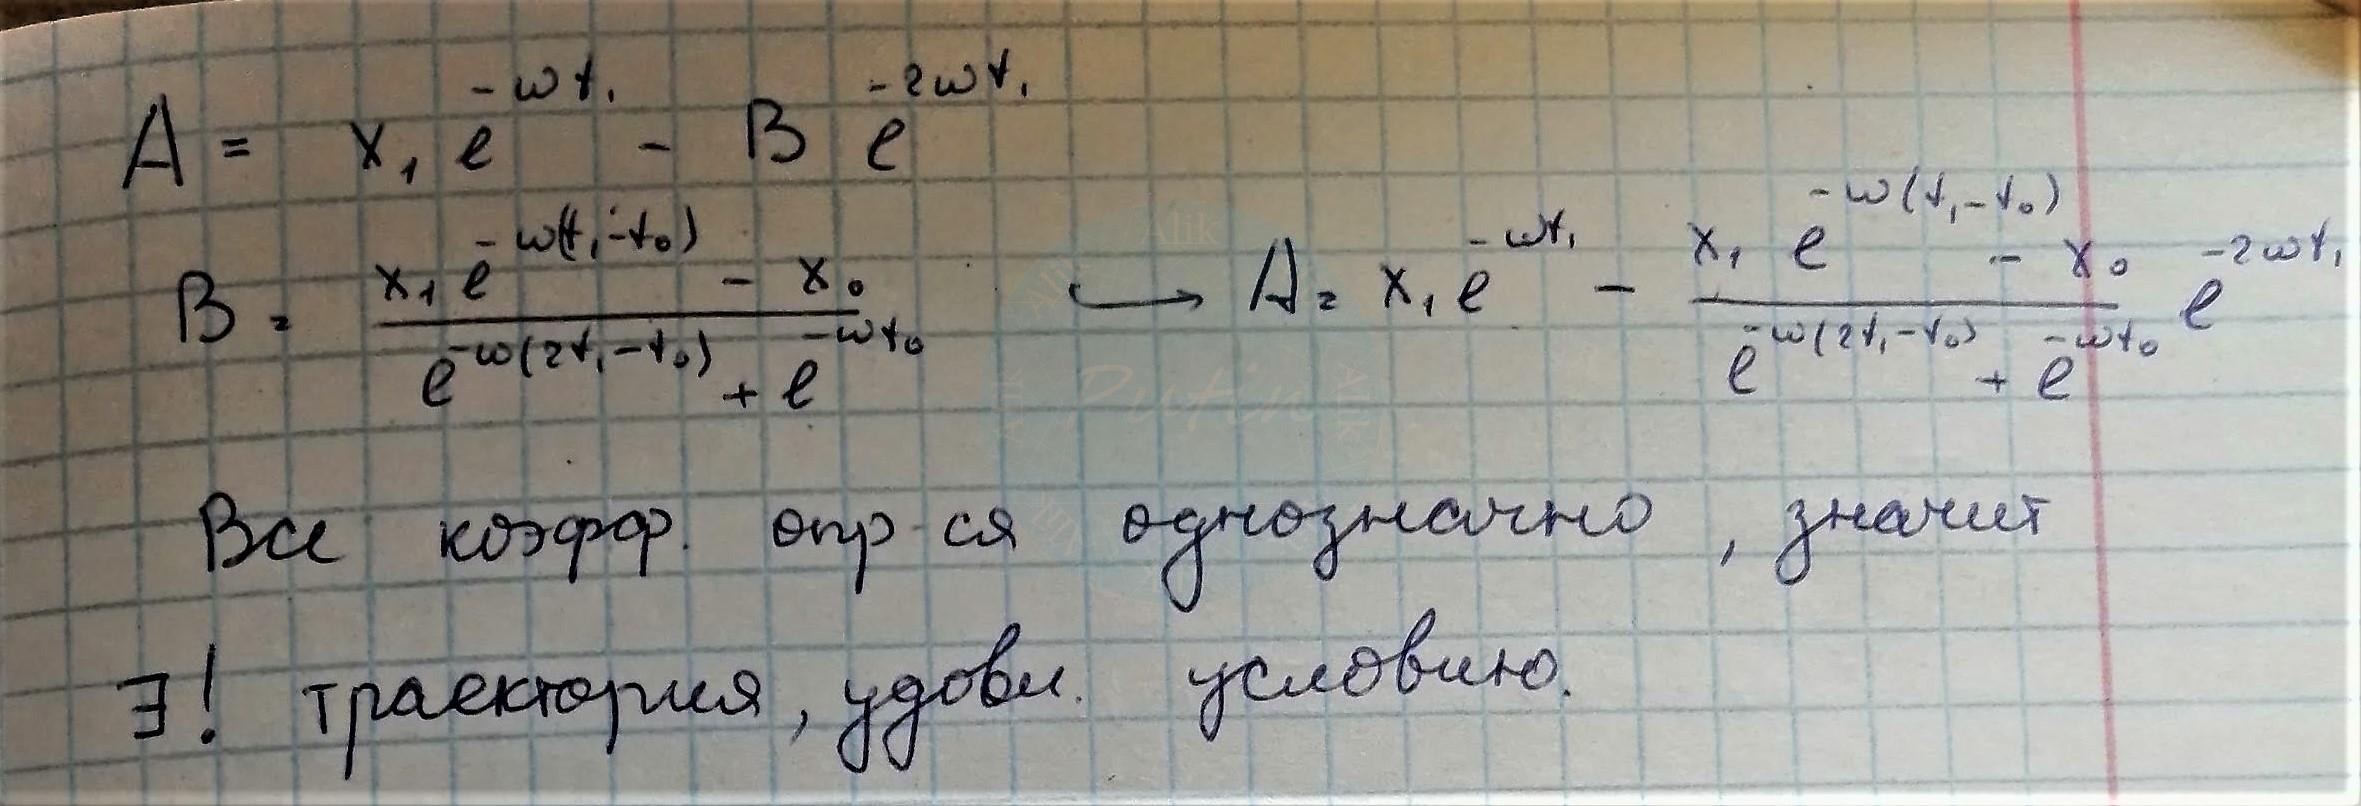 A = x₁ e^{-ωt₁} - B e^{-2ωt₁}
B = \frac{x₁ e^{-ω(t₁-t₀)} - x₀}{e^{-ω(2t₁-t₀)} + e^{-ωt₀}} ↪ A = x₁ e^{-ωt₁} - \frac{x₁ e^{-ω(t₁-t₀)} - x₀}{e^{-ω(2t₁-t₀)} + e^{-ωt₀}} e^{-2ωt₁}
Alik
Putin
Все коэфф. опр-ся однозначно, значит
∃! траектория, удовл. условию.